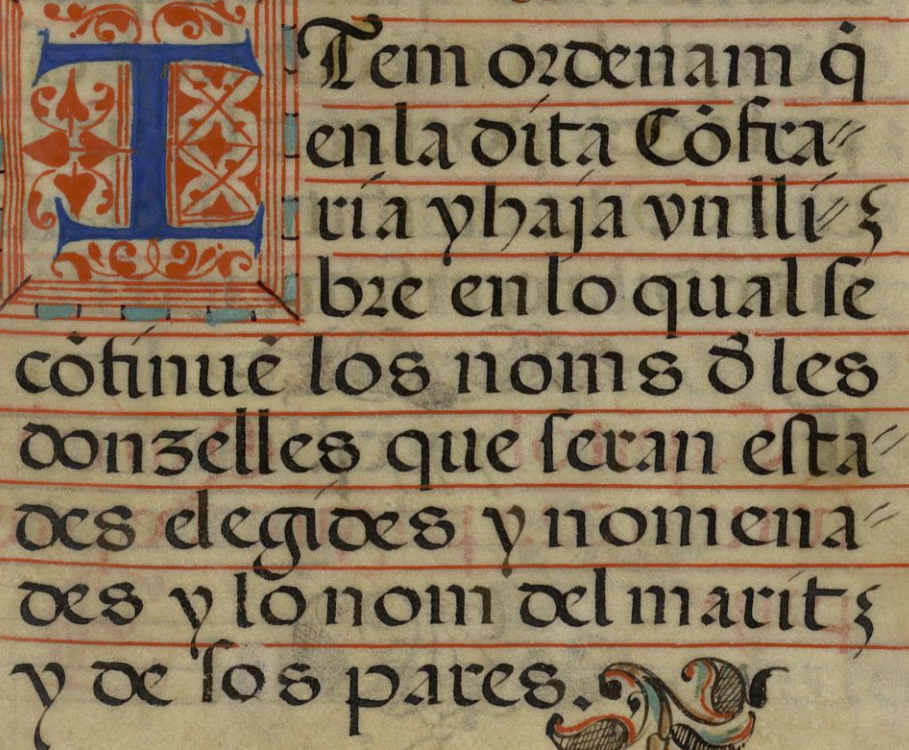 ITem ordenam q̃
en la dita Cõfra⸗
ria y haja vn lli⸗
bre en lo qual ſe
cõtinuẽ los noms đ les
donzelles que ſeran eſta⸗
des elegides y nomena⸗
des y lo nom del marit
y de los pares.